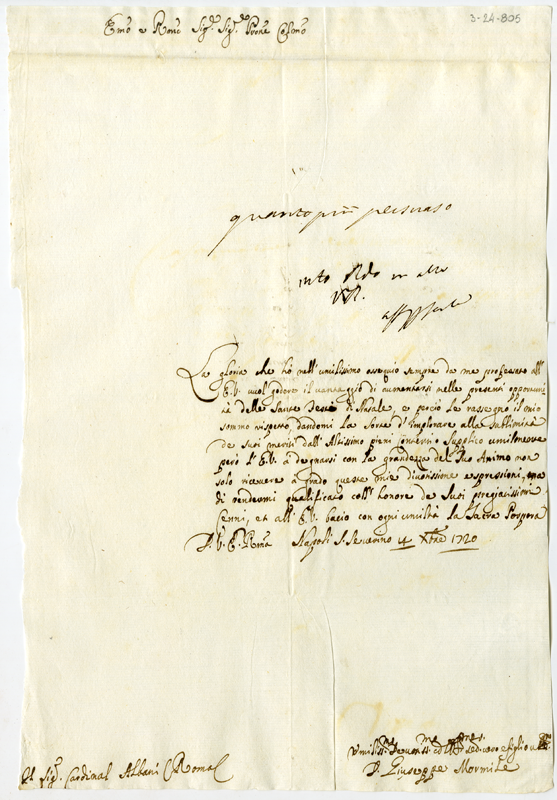 3-24-805
Emo e Rmo Sigr. Sigr. Prone Colmo
quanto più persuaso
La gloria che hò nell'umilissimo ossequio sempre da me professato all'
E.V. vuol godere il vantaggio di aumentarsi nelle presenti opportuni
tà delle Sante Feste di Natale, e perciò Le rassegno il mio
sommo rispetto, dandomi la sorte d'implorare alla sublimità
de Suoi meriti dall'Altissimo pieni contenti. Supplico umilmente
però l'E.V. à degnarsi con la grandezza del Suo Animo non
solo ricevere à grado queste mie divotissime espressioni, ma
di rendermi qualificato coll'honore de Suoi pregiatissimi
Cenni, et all'E.V. bacio con ogni umiltà la Sacra Porpora
D.V.E. Rma Napoli S. Severino 14 Xbre 1720
Umiliss. Devotiss.
D. Giuseppe Mormile
Al Sigr. Cardinal Albani Roma